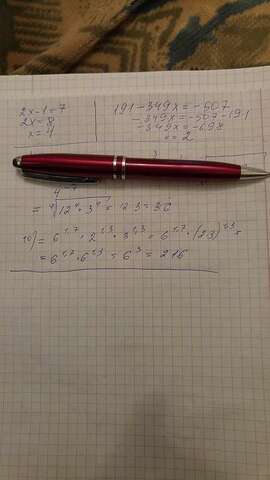 2x-1=7
2x=8
x=4
191-349x=-507
-349x=-507-191
-349x=-698
x=2
= ⁴√12⁴·3⁴ = 12·3=36
10)= 6^1,7 · 2^1,3 · 3^1,3 = 6^1,7 · (2·3)^1,3 =
= 6^1,7 · 6^1,3 = 6³ = 216